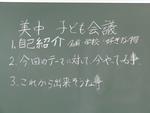 美中 子ども会議
1.自己紹介 名前 学校 好きな物
2.今回のテーマに対して、今やってる事
3.これから出来そうな事